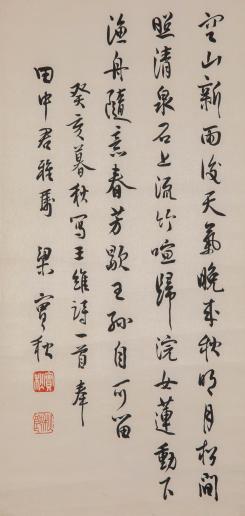 空山新雨後天氣晚來秋明月松間
照清泉石上流竹喧歸浣女蓮動下
漁舟隨意春芳歇王孫自可留
癸亥暮秋寫王維詩一首奉
田中君雅屬 梁實秋